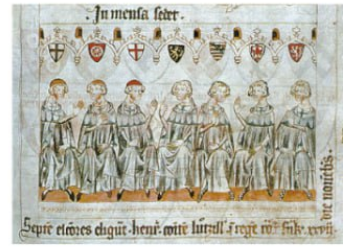 In mensa sedet.
Septē elcōres eligūt henr̄. comitē lutzill'. ī regē rōr̄ frāk. xxvii.
die novēbris.